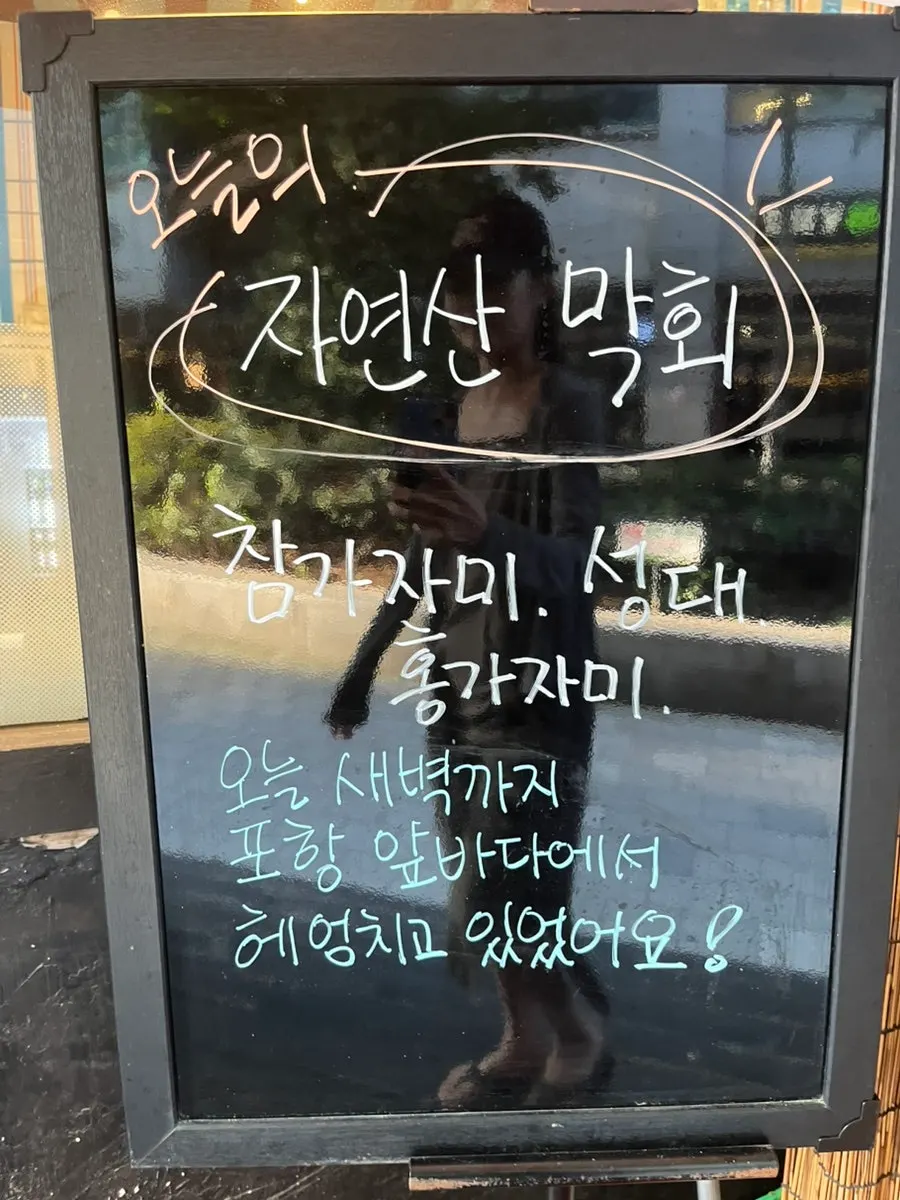 오늘의
자연산 막회
참가자미. 성대.
홍가자미.
오늘 새벽까지
포항 앞바다에서
헤엄치고 있었어요!